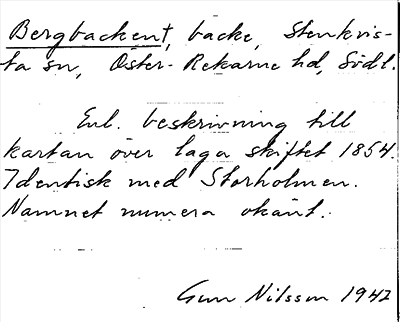 Bergbacken†, backe, Stenkvis-
ta sn, Öster-Rekarne hd, Södl.
Enl. beskrivning till
kartan över laga skiftet 1854.
Identisk med Storholmen.
Namnet numera okänt.
Gun Nilsson 1942